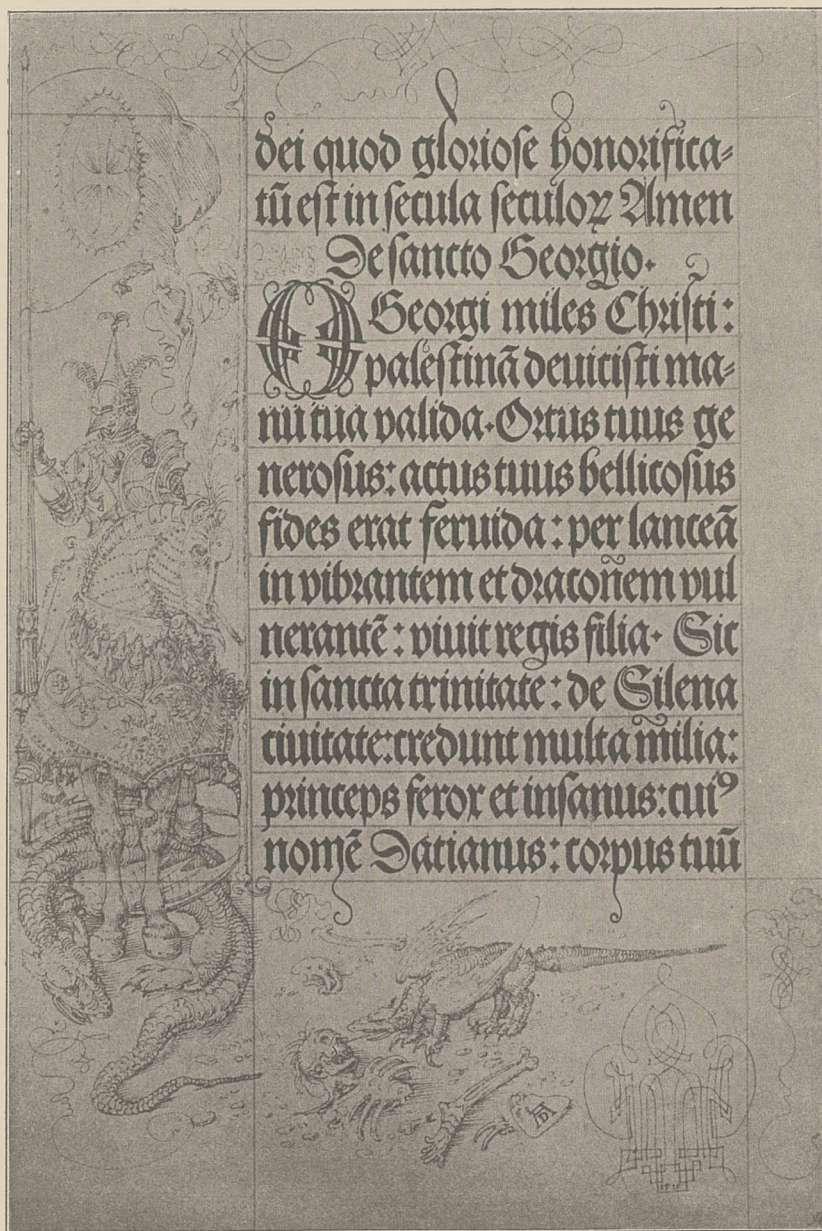 dei quod gloriose honorifica-
tū est in secula seculoꝝ Amen
De sancto Georgio.
O Georgi miles Christi:
palestinā deuicisti ma-
nu tua valida. Ortus tuus ge
nerosus: actus tuus bellicosus
fides erat feruida: per lanceā
in vibrantem et draconem vul
nerantē: viuit regis filia. Sic
in sancta trinitate: de Silena
ciuitate: credunt multa milia:
princeps ferox et insanus: cuiꝰ
nomē Dacianus: corpus tuū
AD